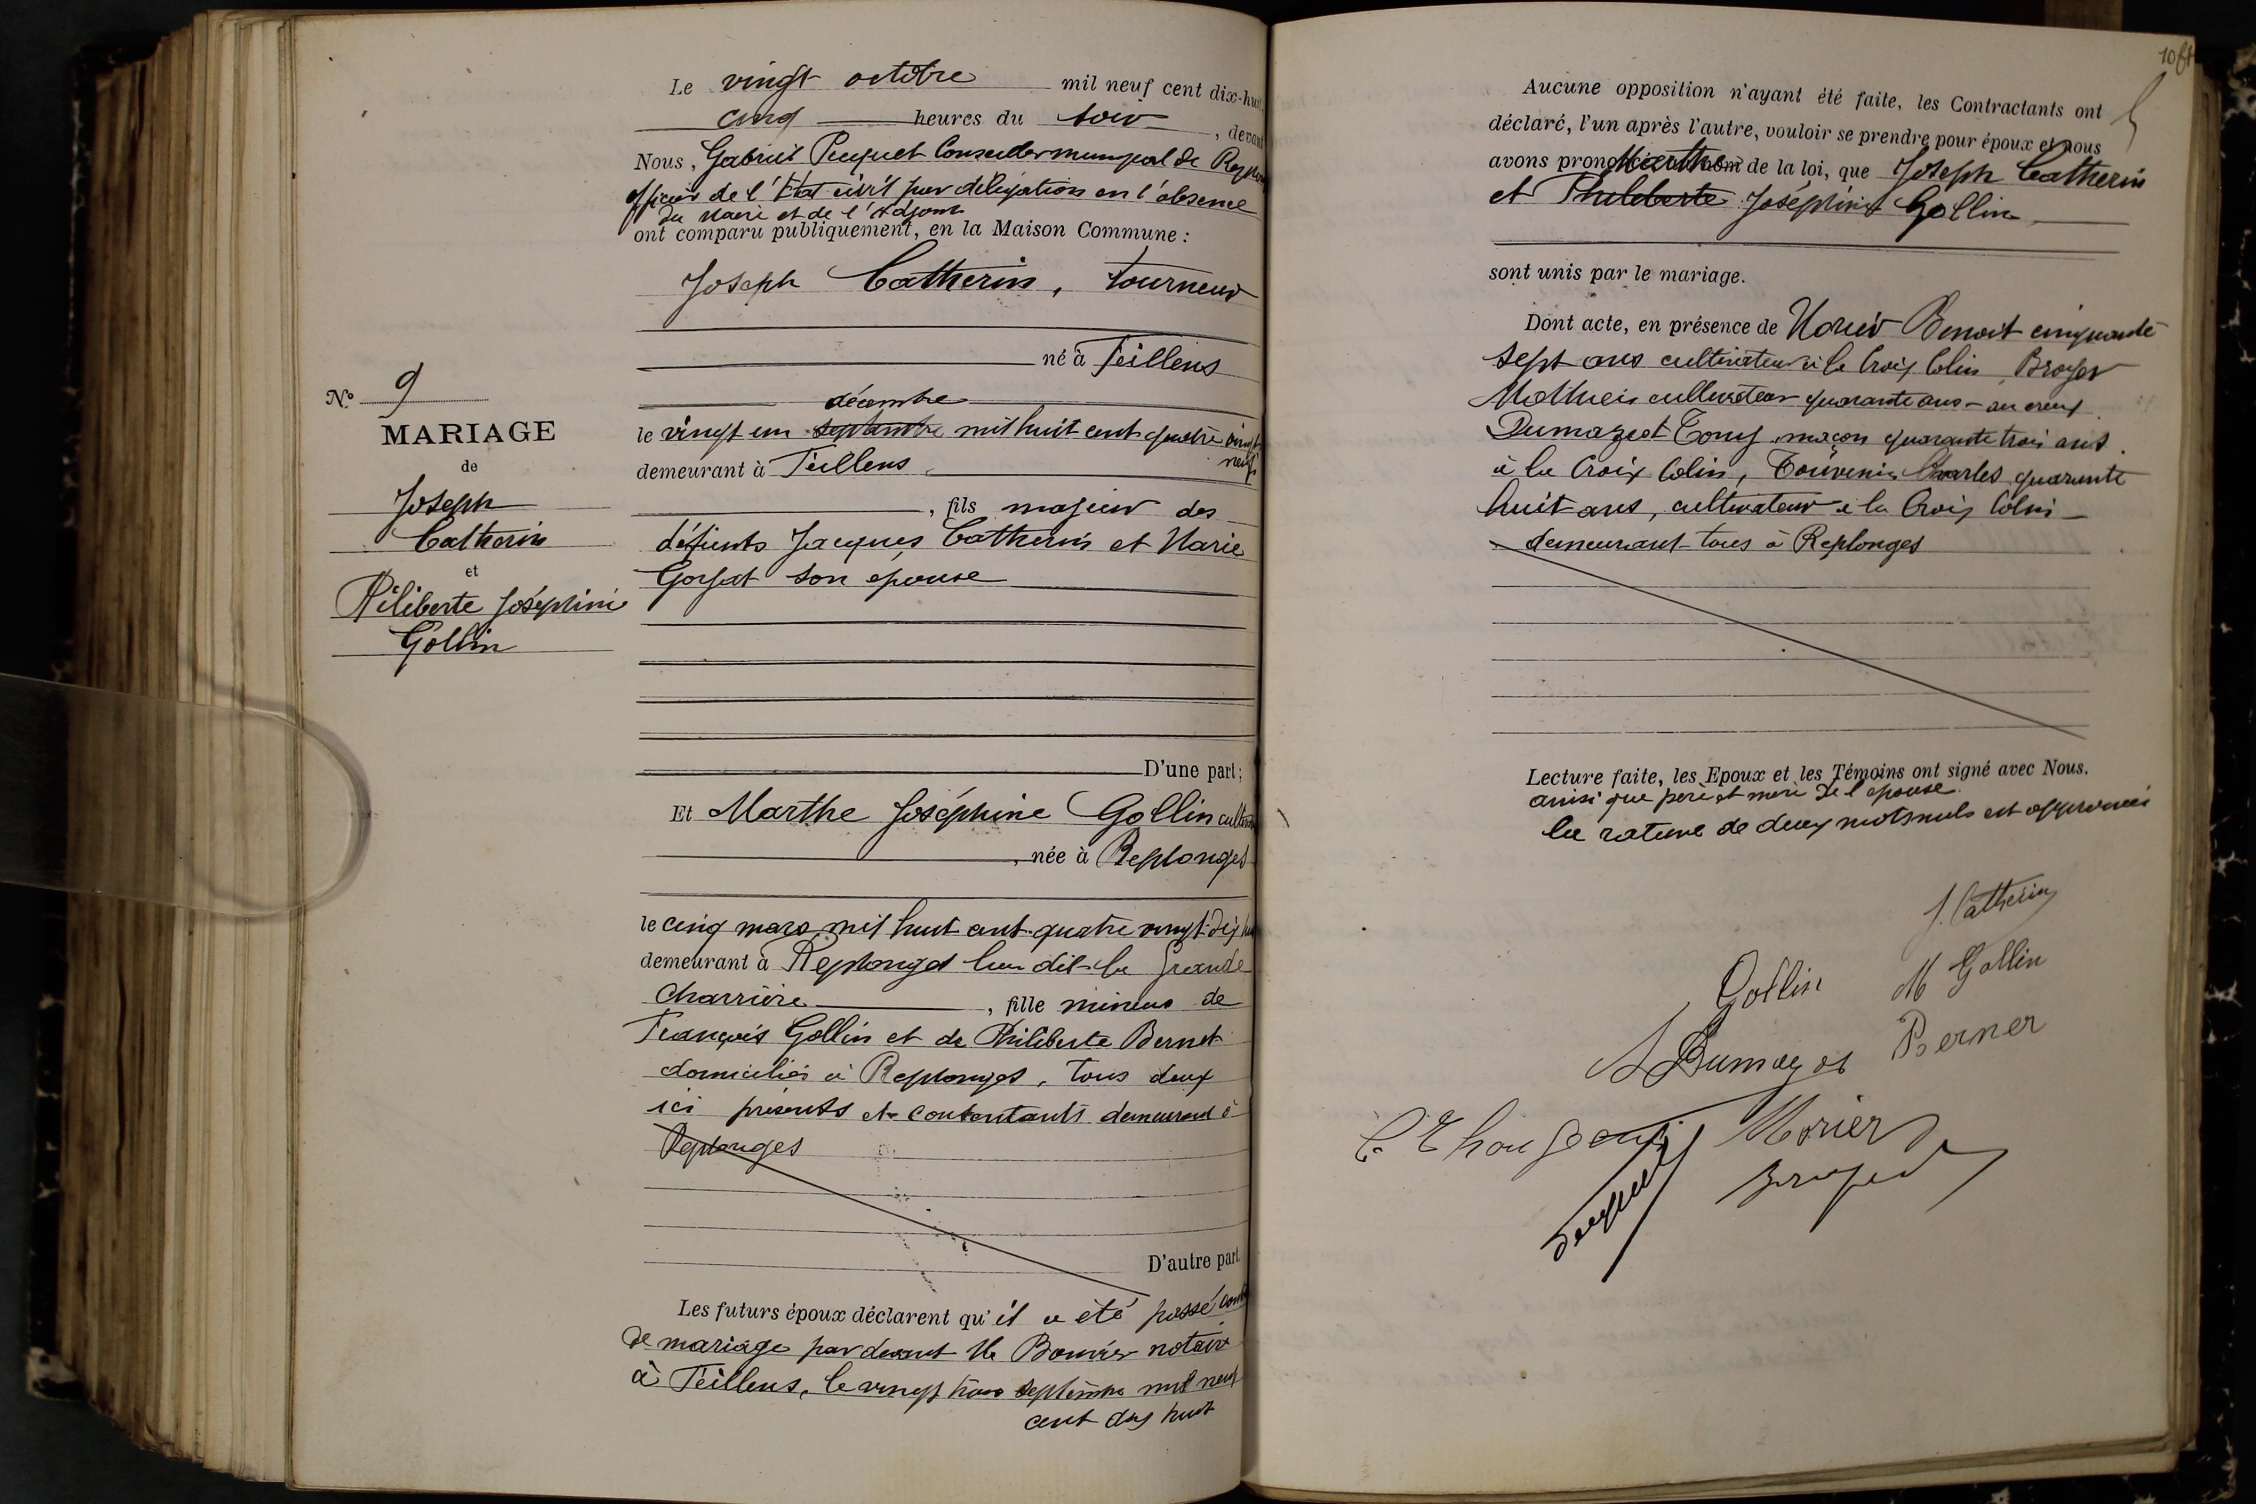 Le vingt octobre mil neuf cent dix-huit
cinq heures du soir, devant
Nous, Gabriel Puquet Conseiller municipal de
officier de l'Etat civil par délégation en l'absence
du maire et de l'adjoint
ont comparu publiquement, en la Maison Commune :
Joseph Catherin, tourneur
né à Feillens
décembre
le vingt un septembre mil huit cent quatre vingt
neuf
demeurant à Feillens
, fils majeur des
défunts Jacques Catherin et Marie
son épouse
N° 9
MARIAGE
de
Joseph
Catherin
et
Philiberte Joséphine
Gollin
D'une part ;
Et Marthe Joséphine Gollin
, née à Replonges
le cinq mars mil huit cent quatre vingt dix
demeurant à Replonges lieu dit la Grande
Charrière, fille mineure de
François Gollin et de Philiberte Bernet
domiciliés à Replonges, tous deux
ici présents et consentants demeurant à
Replonges
D'autre part
Les futurs époux déclarent qu'il a été passé
de mariage par devant Me Bouvier notaire
à Feillens, le vingt trois septembre mil neuf
cent dix huit
Aucune opposition n'ayant été faite, les Contractants ont
déclaré, l'un après l'autre, vouloir se prendre pour époux et nous
avons prononcé au nom de la loi, que Joseph Catherin
Marthe
et Philiberte Joséphine Gollin
sont unis par le mariage.
Dont acte, en présence de Morier Benoit cinquante
sept ans cultivateur à la Croix Colin, Broyer
Mathieu cultivateur quarante ans au creux
Dumazeot Tony maçon quarante trois ans
à la Croix Colin, Charles quarante
huit ans, cultivateur à la Croix Colin
demeurant tous à Replonges
Lecture faite, les Epoux et les Témoins ont signé avec Nous.
ainsi que père et mère de l'épouse.
la rature de deux mots nuls est approuvée
J. Catherin
Gollin
M Gollin
Berner
Morier
Broyer